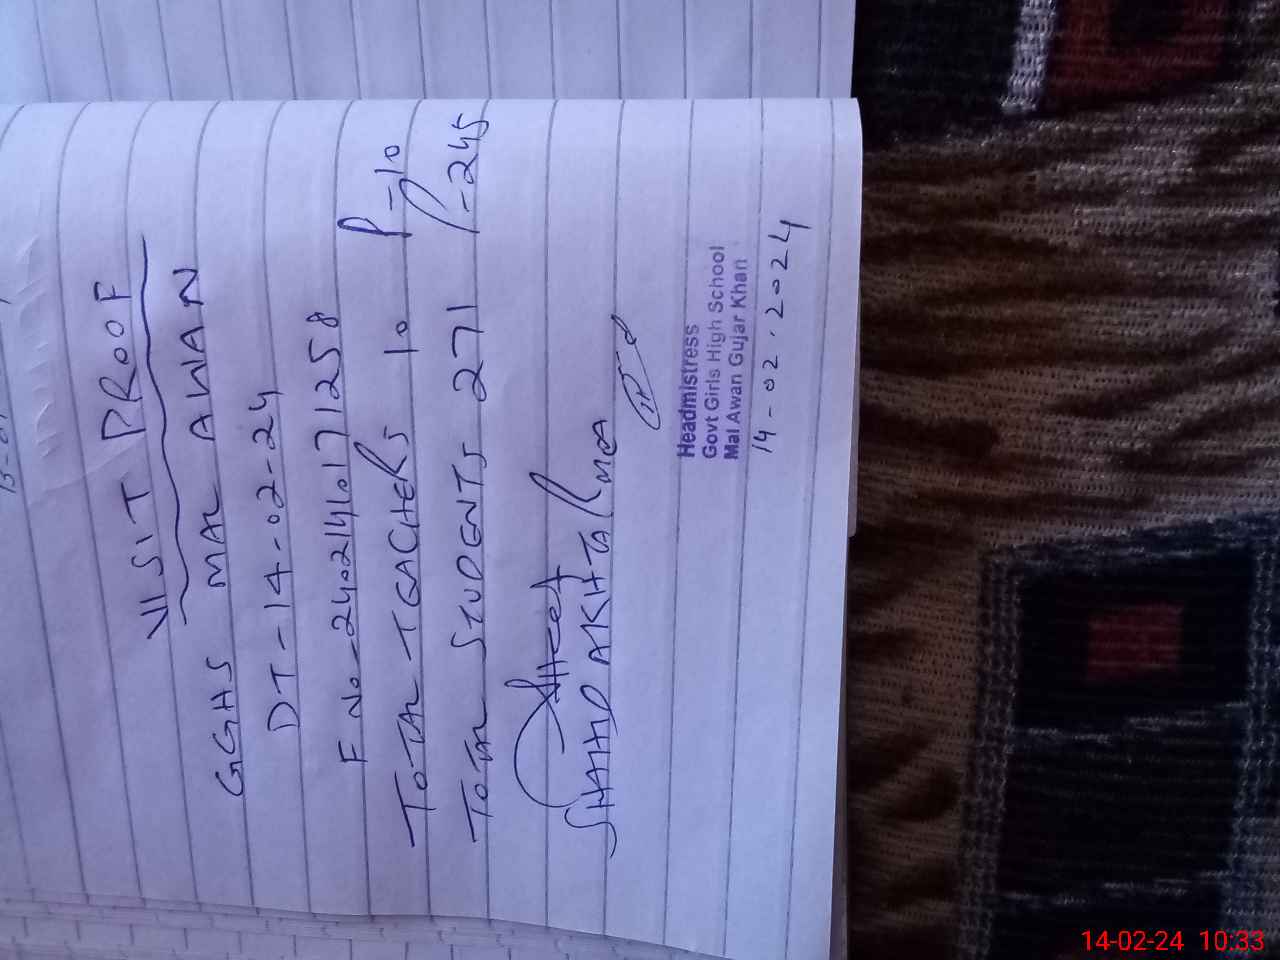 VISIT PROOF
GGHS MAL AWAN
DT-14-02-24
F No-24021410171258
TOTAL TEACHERS 10 P-10
TOTAL STUDENTS 271 P-245
SHAHID AKHTAR MEA
Headmistress
Govt Girls High School
Mal Awan Gujar Khan
14-02.2024
14-02-24 10:33